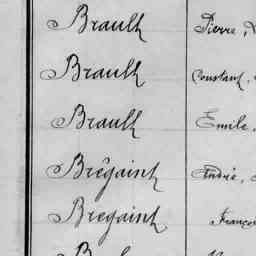 Brault Pierre,
Brault Constant,
Brault Emile,
Brégaint André,
Bregaint Franço